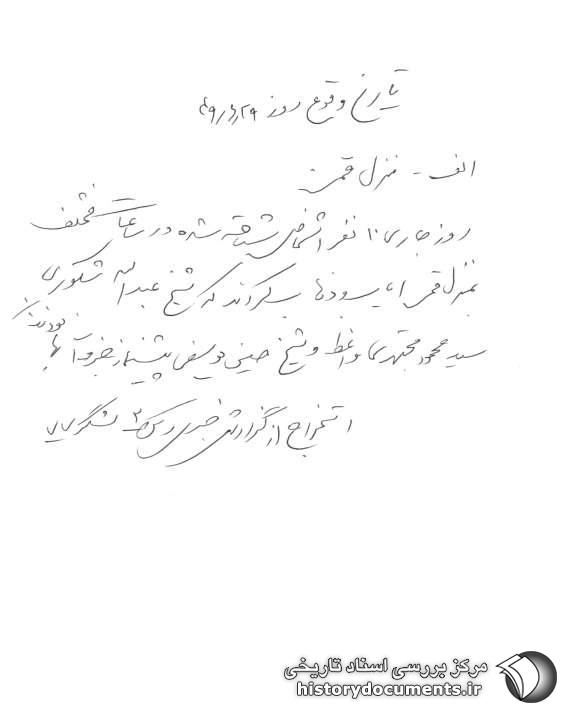 تاریخ وقوع روز ۴۹/۶/۲۹
الف - منزل قمی
روز جاری ۱۰ نفر اشخاص شناخته شده در ساعات مختلف
بمنزل قمی ایاب و ذهاب میکردند که شیخ عبداله شکوری
سید محمود مجتهدی واعظ و شیخ حسینی یوسفی پیشنماز جزو آنها بودند
استخراج از گزارش خبری رکن ۲ لشگر ۷۷
مرکز بررسی اسناد تاریخی
historydocuments.ir